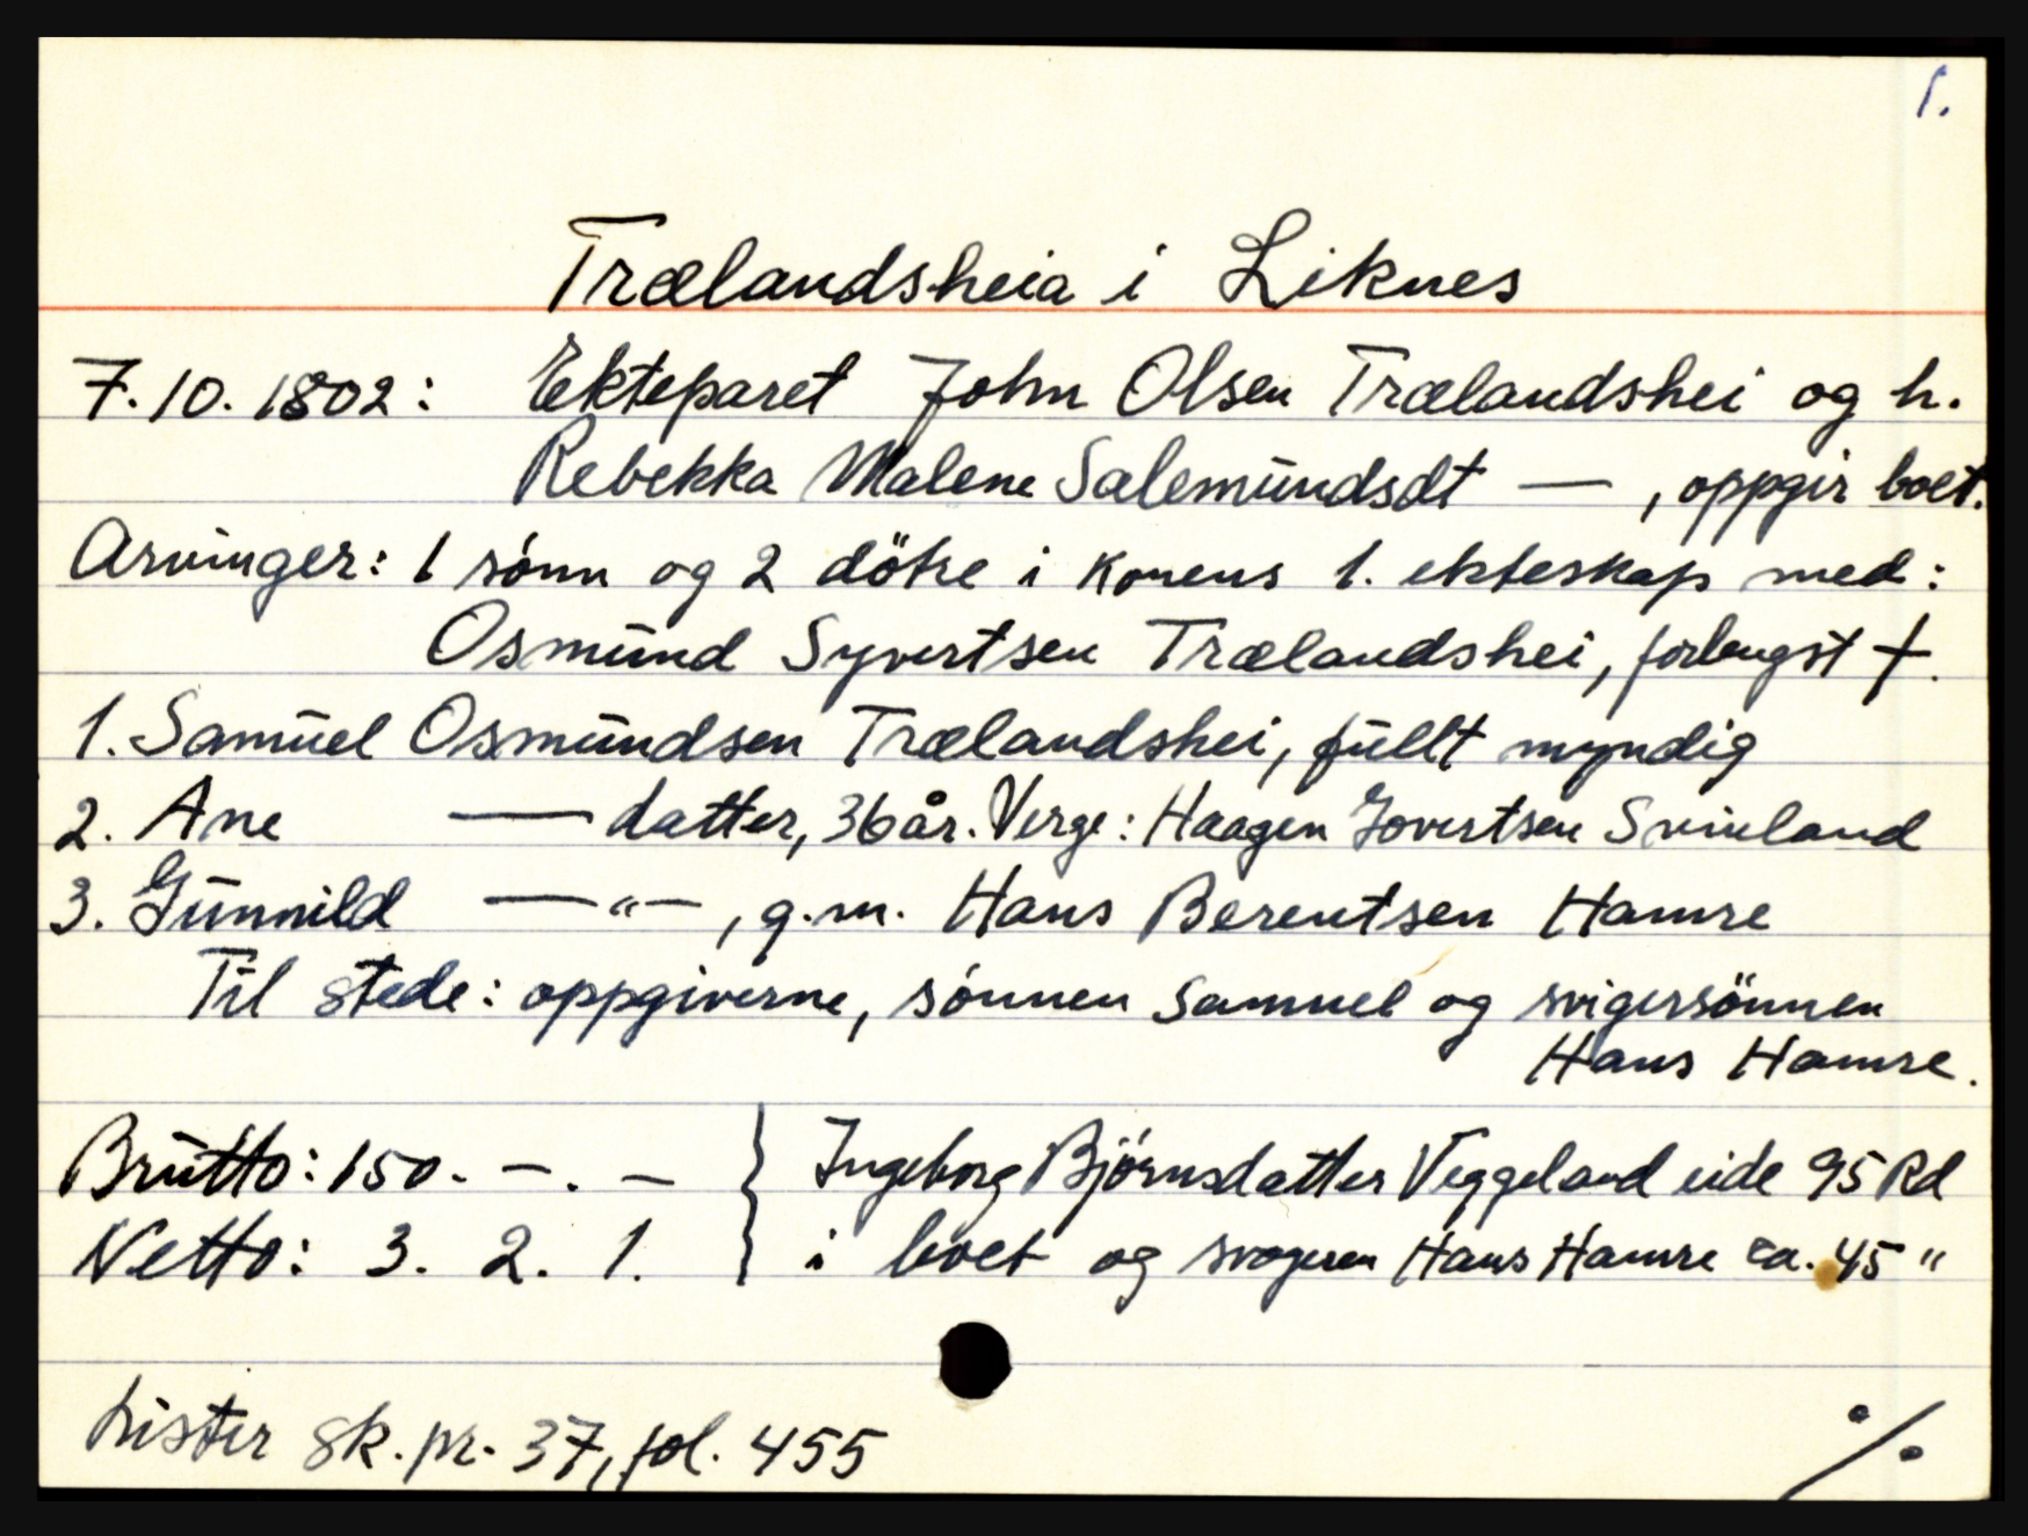 1.
Trælandsheia i Liknes
7.10.1802: Ekteparet John Olsen Trælandshei og h.
Rebekka Malene Salemundsdt — , oppgir boet.
Arvinger: 1 sónn og 2 dötre i konens 1. ekteskap med:
Osmund Syvertsen Trælandshei, forlengst †.
1. Samuel Osmundsen Trælandshei, fullt myndig
2. Ane — datter, 36 år. Verge: Haagen Govertsen Svinland
3. Gunnild — " —, g.m. Hans Berentsen Hamre
Til stede: oppgiverne, sónnen Samuel og svigersönnen
Hans Hamre.
Brutto: 150. —. — } Ingeborg Björnsdatter Veggeland eide 95 Rd
Netto: 3. 2. 1. } i boet og svogeren Hans Hamre ca. 45 "
Lister sk.pr. 37, fol. 455
%